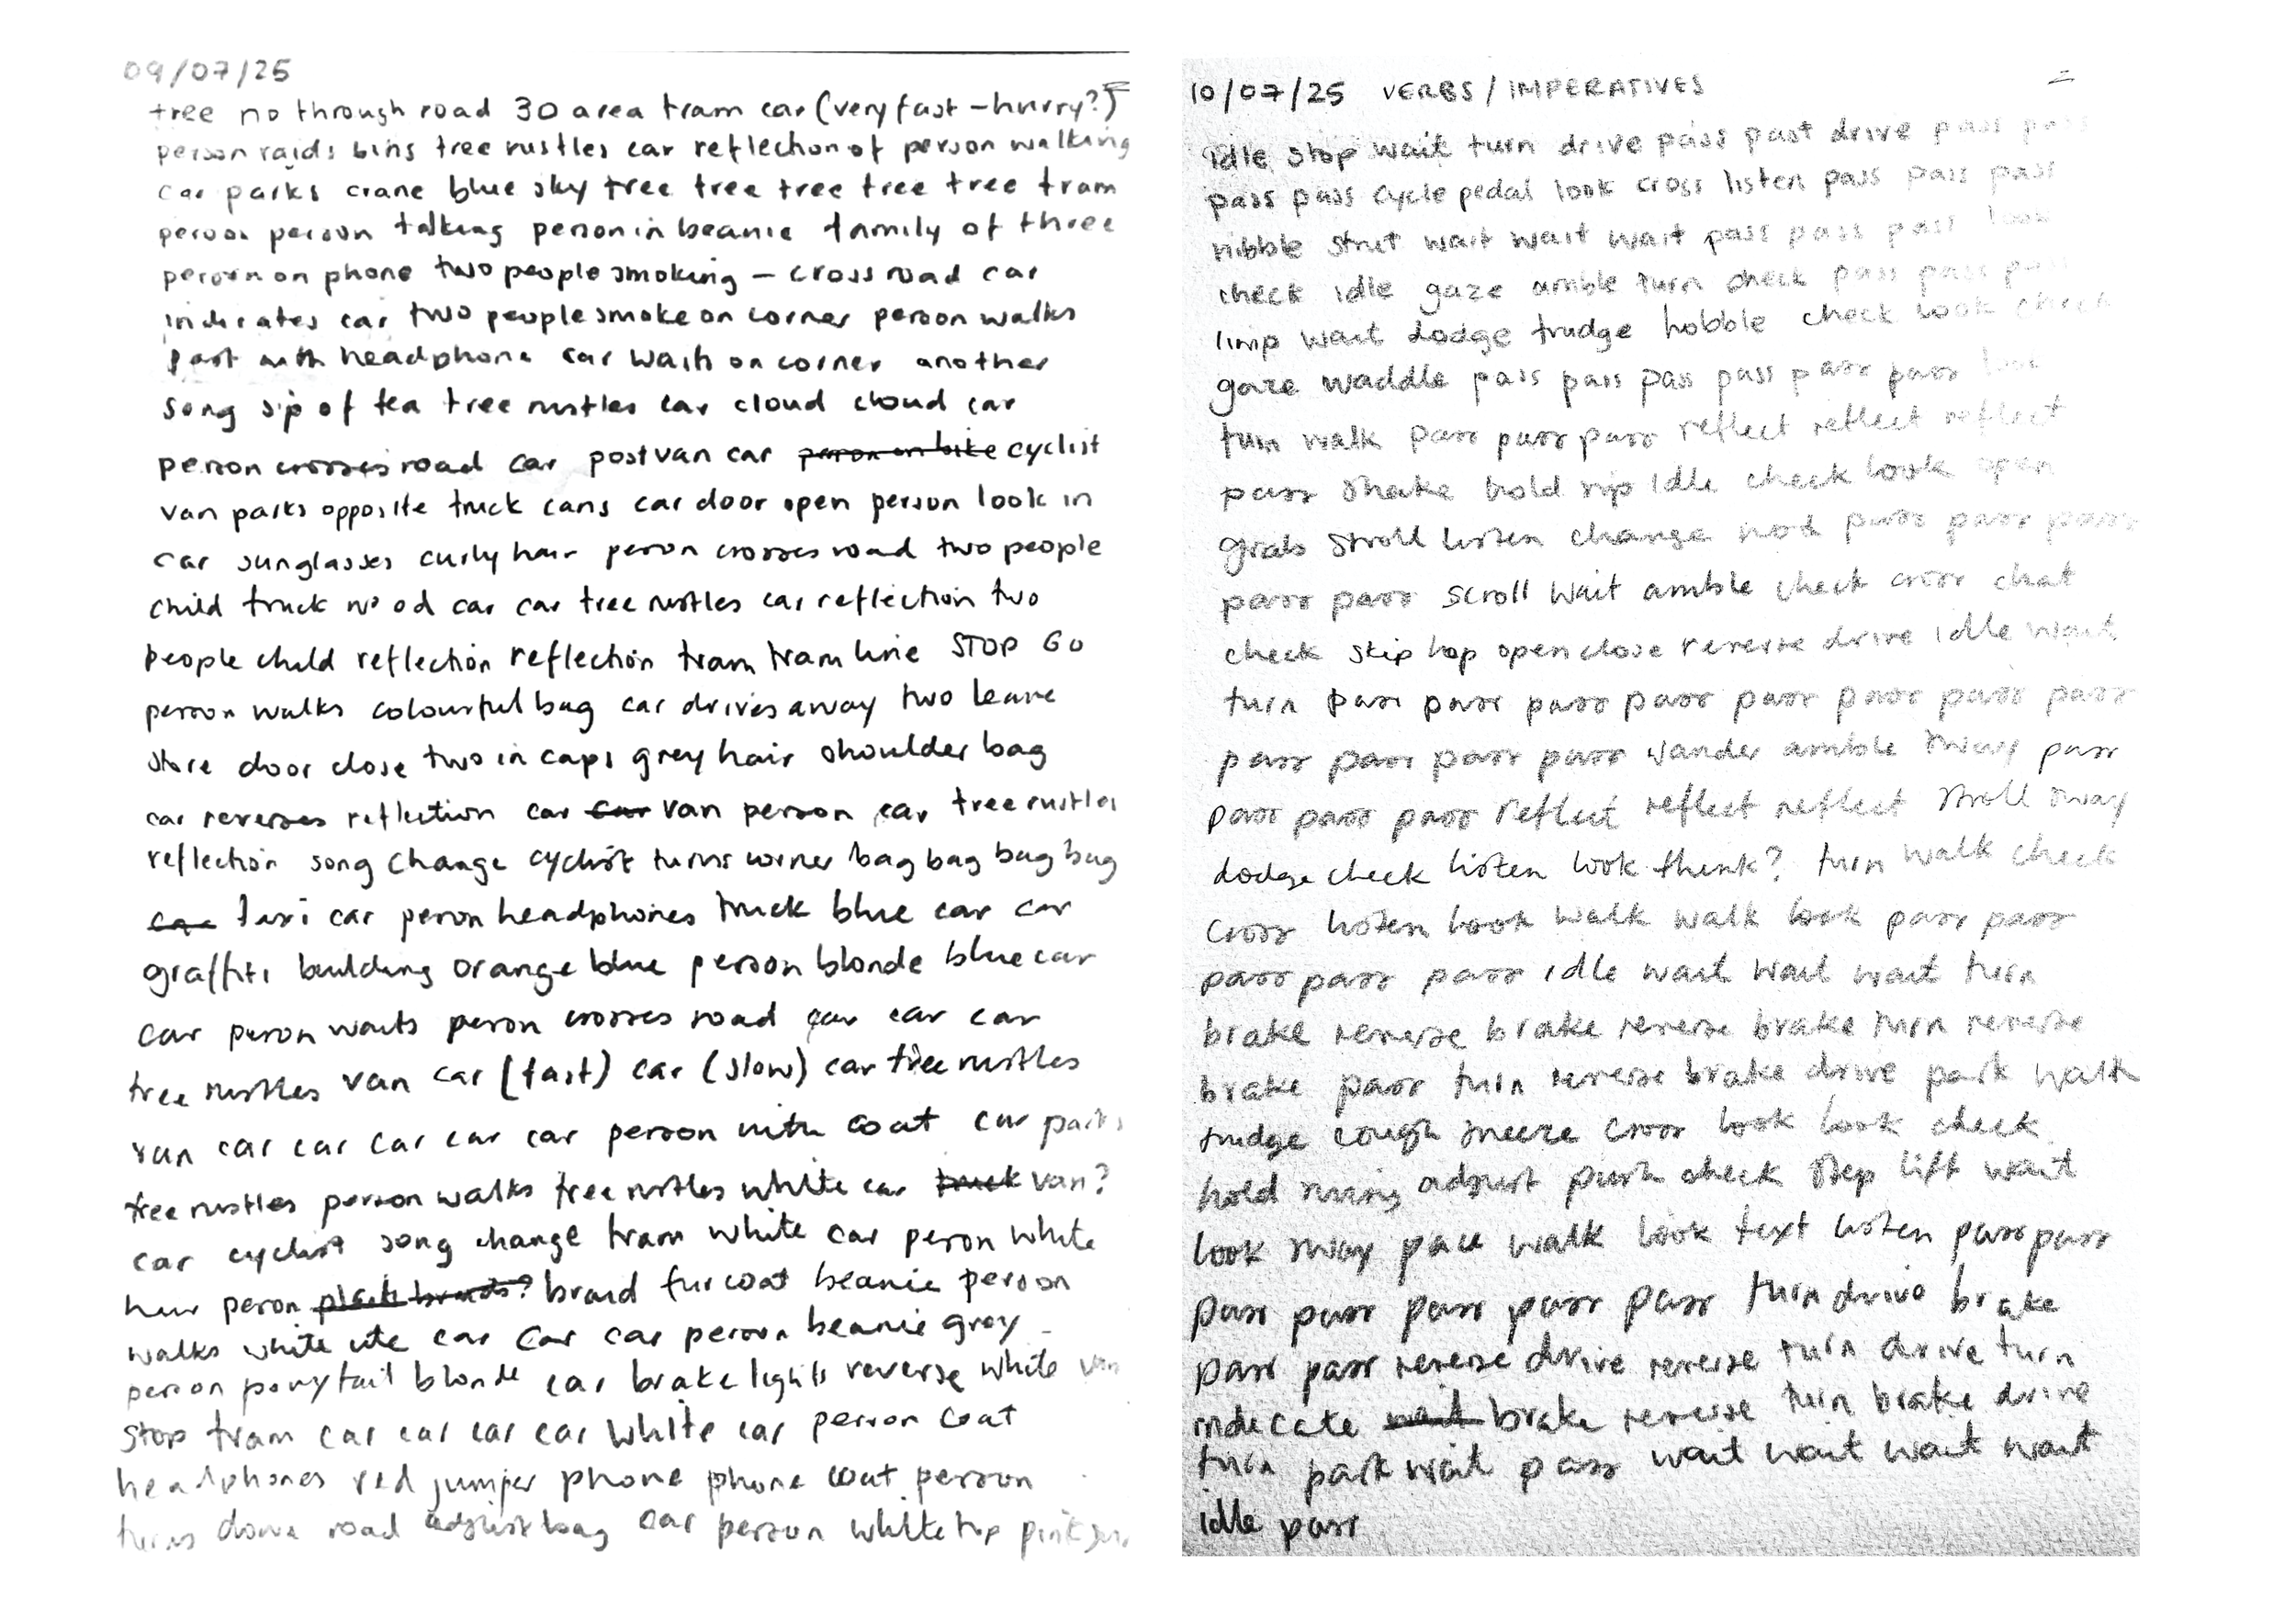 09/07/25
tree no through road 30 area tram car (very fast – hurry?)
person raids bins tree rustles car reflection of person walking
car parks crane blue sky tree tree tree tree tree tram
person person talking person in beanie family of three
person on phone two people smoking – cross road car
indicates car two people smoke on corner person walks
past with headphone car wash on corner another
song sip of tea tree rustles car cloud cloud car
person crosses road car post van car person on bike cyclist
van parks opposite truck cans car door open person look in
car sunglasses curly hair person crosses road two people
child truck wood car car tree rustles car reflection two
people child reflection reflection tram tram line STOP GO
person walks colourful bag car drives away two leave
store door close two in caps grey hair shoulder bag
car reverses reflection car car van person car tree rustles
reflection song change cyclist turns corner bag bag bag bag
car taxi car person headphones truck blue car car
graffiti building orange blue person blonde blue car
car person waits person crosses road car car car
tree rustles van car (fast) car (slow) car tree rustles
van car car car car car person with coat car parks
tree rustles person walks tree rustles white car truck van?
car cyclist song change tram white car person white
hair person braid fur coat beanie person
walks white ute car car car person beanie grey
person ponytail blonde car brake lights reverse white van
stop tram car car car car white car person coat
headphones red jumper phone phone coat person
turns down road adjust bag car person white top pink
10/07/25 VERBS / IMPERATIVES
idle stop wait turn drive pass past drive pass pass
pass pass cycle pedal look cross listen pass pass pass
nibble strut wait wait wait pass pass pass look
check idle gaze amble turn check pass pass pass
limp wait dodge trudge hobble check look check
gaze waddle pass pass pass pass pass pass look
turn walk pass pass pass reflect reflect reflect
pass shake hold sip idle check look open
grab stroll listen change nod pass pass pass
pass pass scroll wait amble check cross chat
check skip hop open close reverse drive idle wait
turn pass pass pass pass pass pass pass pass
pass pass pass pass wander amble sway pass
pass pass pass reflect reflect reflect stroll sway
dodge check listen look think? turn walk check
cross listen look walk walk look pass pass
pass pass pass idle wait wait wait turn
brake reverse brake reverse brake turn reverse
brake pass turn reverse brake drive park walk
trudge cough sneeze cross look look check
hold swing adjust push check step lift wait
look sway pace walk look text listen pass pass
pass pass pass pass pass turn drive brake
pass pass reverse drive reverse turn drive turn
indicate wait brake reverse turn brake drive
turn park wait pass wait wait wait wait
idle pass